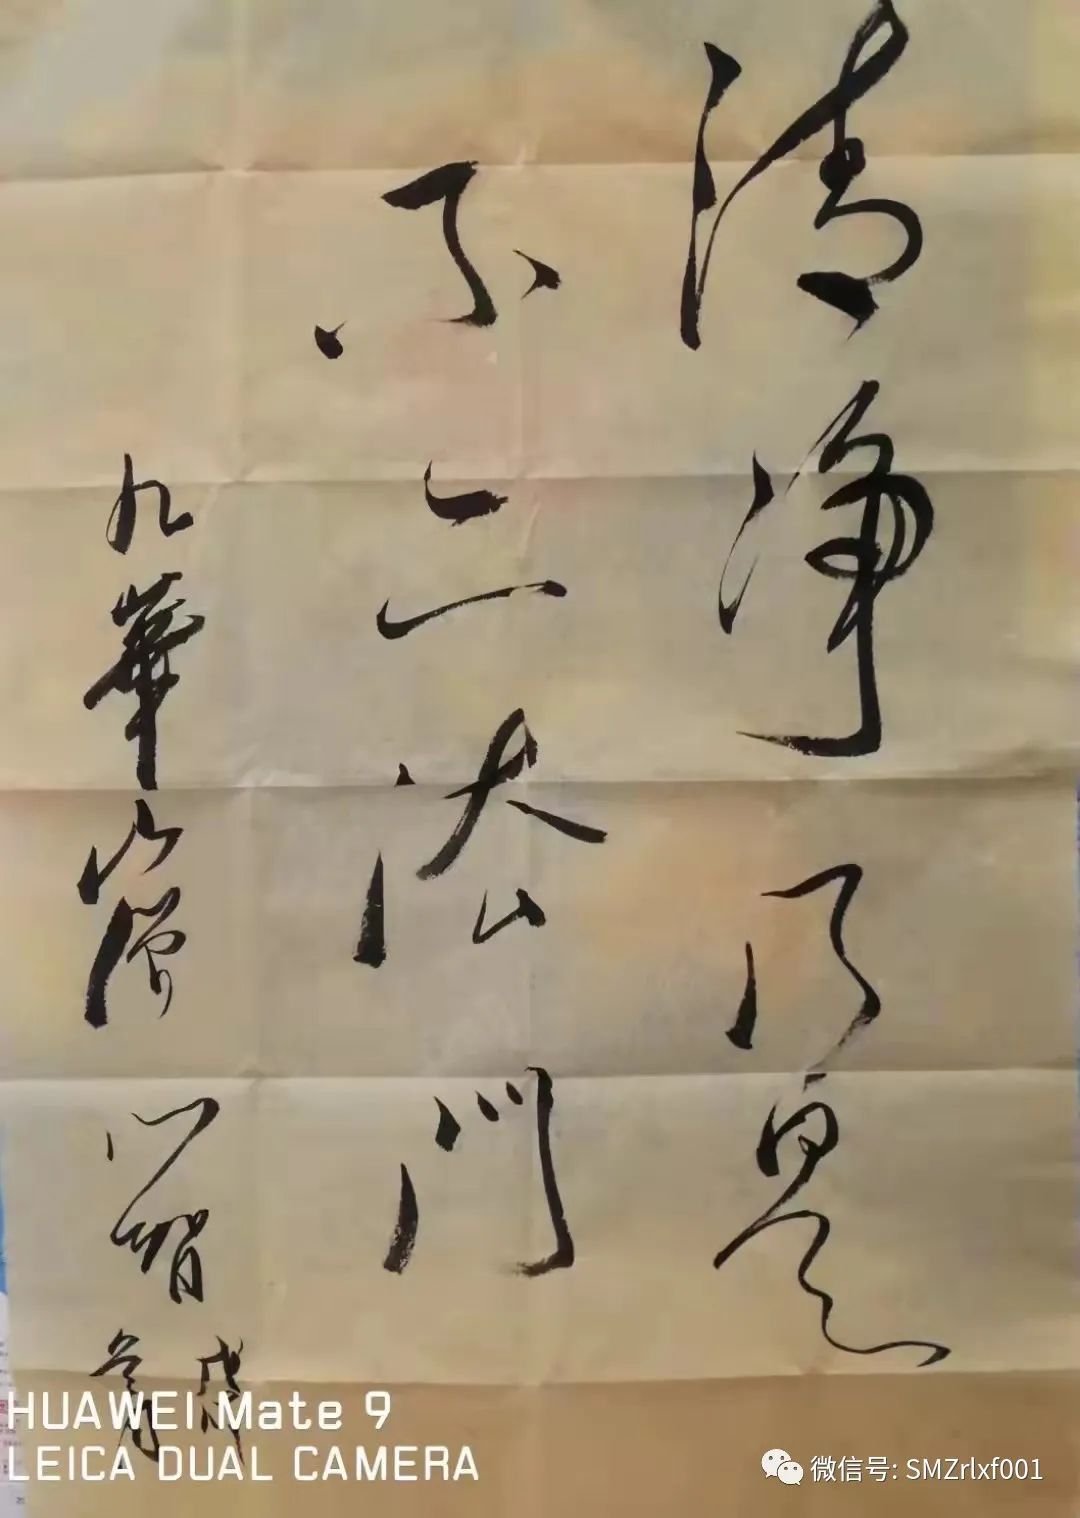 清净乃是
不二法门
九華山僧
心智
HUAWEI Mate 9
LEICA DUAL CAMERA
微信号: SMZrlxf001